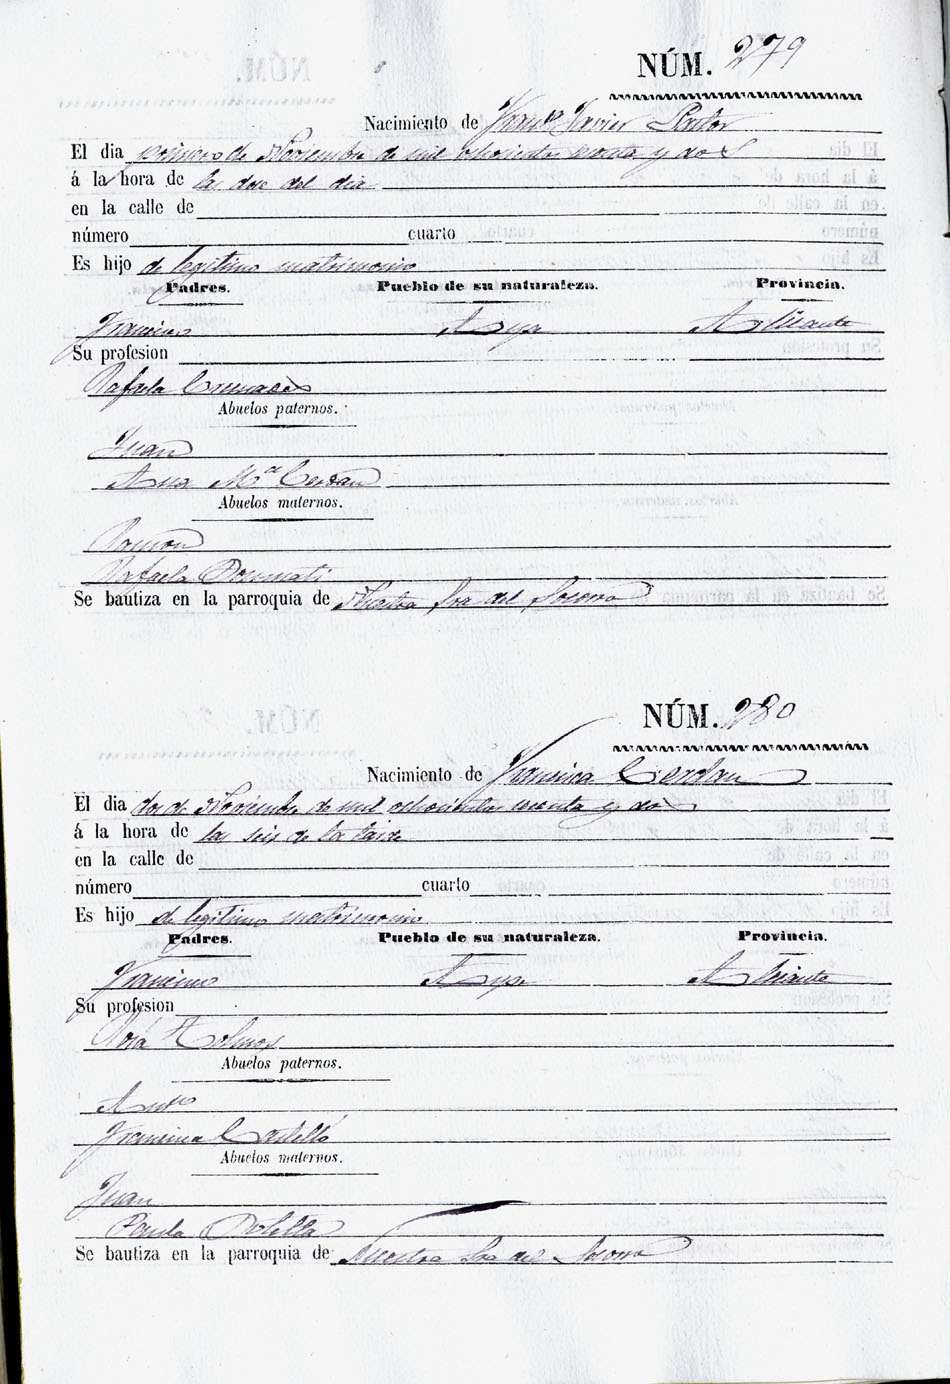 NÚM. 279
Nacimiento de Franco Javier Pastor
El dia primero de Noviembre de mil ochocientos noventa y dos
á la hora de las doce del dia
en la calle de
número cuarto
Es hijo de legitimo matrimonio
Padres. Pueblo de su naturaleza. Provincia.
Francisco Alicante
Su profesion
Rafaela
Abuelos paternos.
Juan
Ana Ma Cerdan
Abuelos maternos.
Ramon
Rafaela
Se bautiza en la parroquia de Nuestra Sra del Socorro
NÚM. 280
Nacimiento de Francisca Cerdan
El dia dos de Noviembre de mil ochocientos noventa y dos
á la hora de las seis de la tarde
en la calle de
número cuarto
Es hijo de legitimo matrimonio
Padres. Pueblo de su naturaleza. Provincia.
Francisco Alicante
Su profesion
Abuelos paternos.
Anto
Francisca Castelló
Abuelos maternos.
Juan
Paula
Se bautiza en la parroquia de Nuestra Sra del Socorro